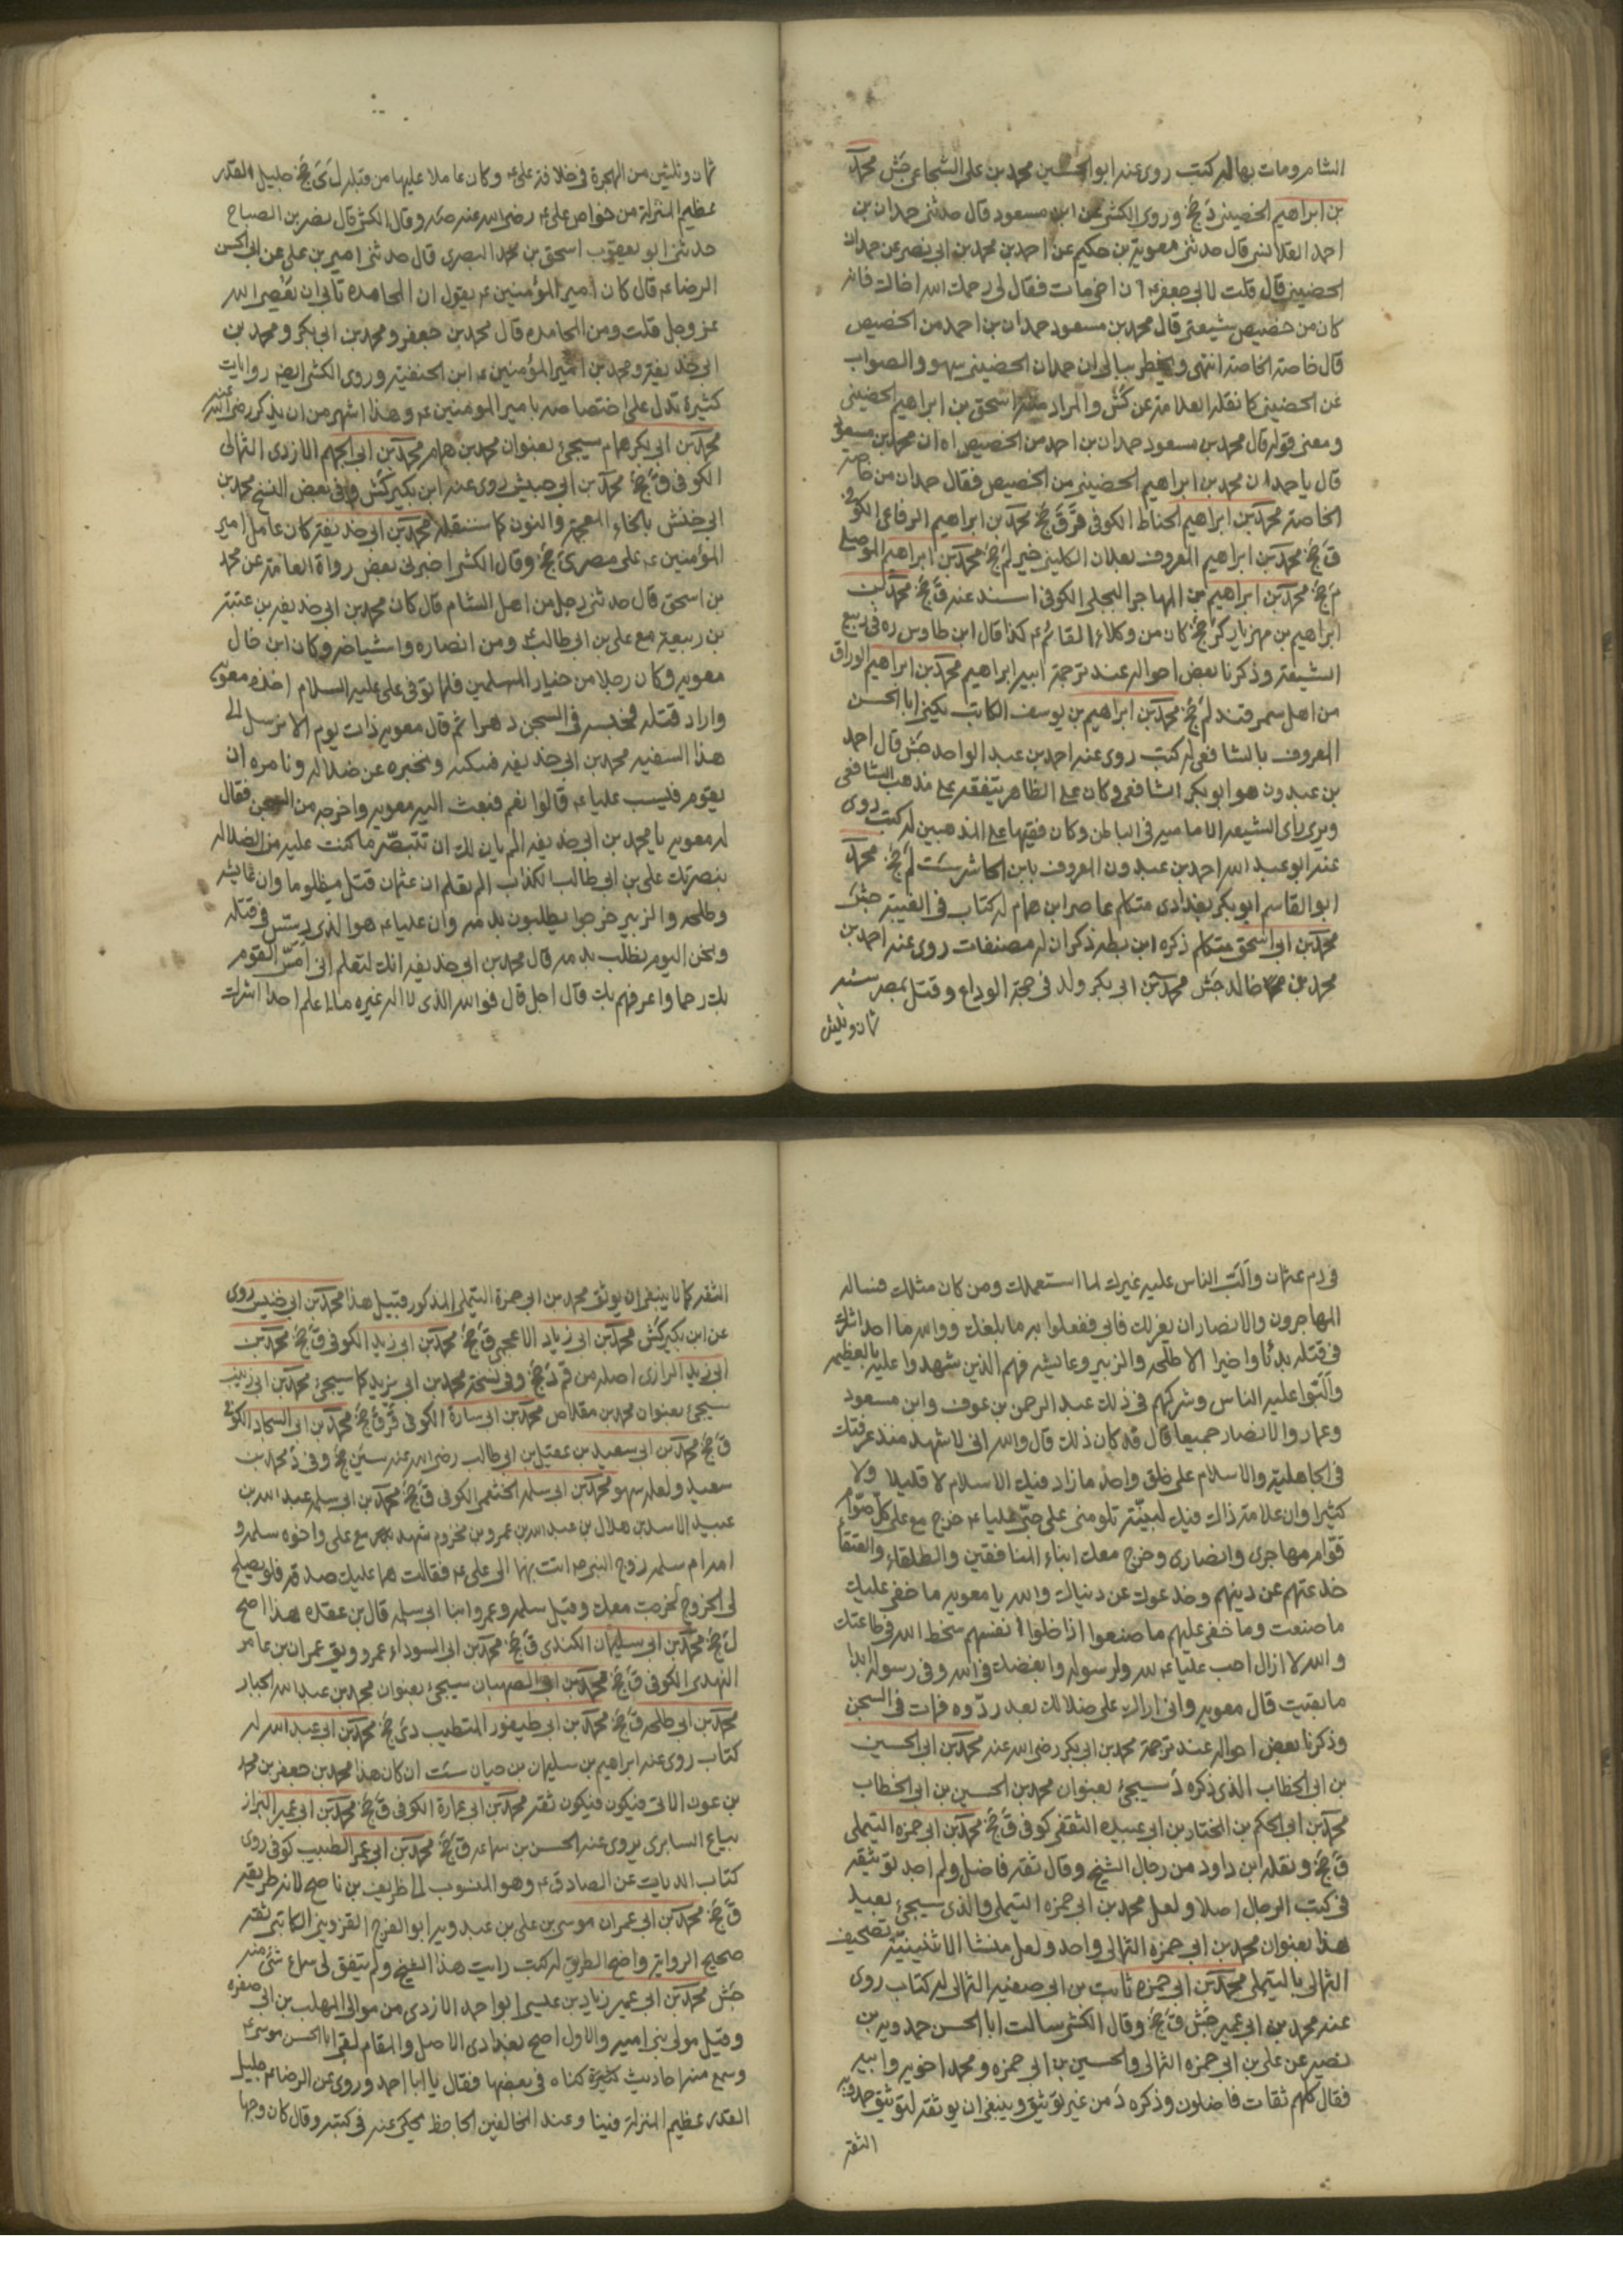 الشام ومات بها له كتب روى عنه ابو الحسين محمد بن على الشجاعى جش محمد
بن ابراهيم الحضينى د جخ وروى الكشى عن ابن مسعود قال حدثنى حمدان بن
احمد القلانسى قال حدثنى معوية بن حكيم عن احمد بن محمد بن ابى نصر عن حمدان
الحضينى قال قلت لابى جعفر ع ان اخى مات فقال لى رحمك الله اخاك فانه
كان من خصيص شيعتى قال محمد بن مسعود حمدان بن احمد من الخصيص
قال خاصة الخاصة انتهى ويخطر ببالى ان حمدان الحضينى سهو والصواب
عن الحضينى كما نقله العلامة عن كش والمراد منه اسحق بن ابراهيم الحضينى
ومعنى قوله قال محمد بن مسعود حمدان بن احمد من الخصيص اه ان محمد بن مسعود
قال يا حمدان محمد بن ابراهيم الحضينى من الخصيص فقال حمدان من خاصة
الخاصة محمد بن ابراهيم الحناط الكوفى ق جخ محمد بن ابراهيم الرفاعى الكوفى
ق جخ محمد بن ابراهيم المعروف بعلان الكلينى خير لم جخ محمد بن ابراهيم الموصلى
م جخ محمد بن ابراهيم بن المهاجر البجلى الكوفى اسند عنه ق جخ محمد بن
ابراهيم بن مهزيار كر جخ كان من وكلاء القائم ع كذا قال ابن طاوس ره فى ربيع
الشيعة وذكرنا بعض احواله عند ترجمة ابيه ابراهيم محمد بن ابراهيم الوراق
من اهل سمرقند لم جخ محمد بن ابراهيم بن يوسف الكاتب يكنى ابا الحسن
المعروف بالشافعى له كتب روى عنه احمد بن عبد الواحد جش قال احمد
بن عبدون هو ابو بكر الشافعى وكان على الظاهر يتفقه على مذهب الشافعى
ويرى راى الشيعه الاماميه فى الباطن وكان فقيها على المذهبين له كتب روى
عنه ابو عبد الله احمد بن عبدون المعروف بابن الحاشر ست لم جخ محمد
ابو القاسم ابو بكر بغدادى متكلم عاصر ابن همام له كتاب فى الغيبة جش
محمد بن ابى اسحق متكلم ذكره ابن بطه ذكر ان له مصنفات روى عنه احمد بن
محمد بن خالد جش محمد بن ابى بكر ولد فى حجة الوداع وقتل بمصر سنه
ثمان وثلثين
ثمان وثلثين من الهجرة فى خلافة على ع وكان عاملا عليها من قبله ل ى جخ جليل القدر
عظيم المنزلة من خواص على ع رضى الله عنه صه وقال الكشى قال نصر بن الصباح
حدثنى ابو يعقوب اسحق بن محمد البصرى قال حدثنى امير بن على عن ابى الحسن
الرضا ع قال كان امير المؤمنين ع يقول ان المحامده تابى ان يعصى الله
عز وجل قلت ومن المحامده قال محمد بن جعفر ومحمد بن ابى بكر ومحمد بن
ابى حذيفة ومحمد بن امير المؤمنين ع ابن الحنفية وروى الكشى ايضا روايات
كثيرة تدل على اختصاصه بامير المومنين ع وهذا اشهر من ان يذكر رضى الله عنه
محمد بن ابى بكر همام سيجئ بعنوان محمد بن همام محمد بن ابى الجهم الازدى الثمالى
الكوفى ق جخ محمد بن ابى حبيش روى عنه ابن بكير كش وفى بعض النسخ محمد بن
ابى خنش بالخاء المعجمة والنون كما سننقله محمد بن ابى حذيفة كان عامل امير
المؤمنين ع على مصر ى جخ وقال الكشى اخبرنى بعض رواة العامة عن محمد
بن اسحق قال حدثنى رجل من اهل الشام قال كان محمد بن ابى حذيفه بن عتبة
بن ربيعة مع على بن ابى طالب ع ومن انصاره واشياعه وكان ابن خال
معويه وكان رجلا من خيار المسلمين فلما توفى على عليه السلام اخذه معويه
واراد قتله فحبسه فى السجن دهرا ثم قال معويه ذات يوم الا نرسل الى
هذا السفيه محمد بن ابى حذيفه فنبكته ونخبره عن ضلاله ونامره ان
يقوم فليسب عليا ع قالوا نعم فبعث اليه معويه واخرجه من السجن فقال
له معويه يا محمد بن ابى حذيفه الم يان لك ان تتبصر ما كنت عليه من الضلاله
بنصرتك على بن ابى طالب الكذاب الم تعلم ان عثمان قتل مظلوما وان عايشه
وطلحه والزبير خرجوا يطلبون بدمه وان عليا ع هو الذى دس فى قتله
ونحن اليوم نطلب بدمه قال محمد بن ابى حذيفه انك لتعلم انى امس القوم
بك رحما واعرفهم بك قال اجل قال فوالله الذى لا اله غيره ما اعلم احدا اشرك
فى دم عثمان والب الناس عليه غيرك لما استعملك ومن كان مثلك فساله
المهاجرون والانصار ان يعزلك فابى ففعلوا به ما بلغك ووالله ما احد اشرك
فى قتله بدئا واخيرا الا طلحه والزبير وعايشه فهم الذين شهدوا عليه بالعظيمه
والبوا عليه الناس وشركهم فى ذلك عبد الرحمن بن عوف وابن مسعود
وعمار والانصار جميعا قال قد كان ذلك قال والله انى لاشهد منذ عرفتك
فى الجاهلية والاسلام على خلق واحد ما زاد فيك الاسلام لا قليلا ولا
كثيرا وان علامة ذاك فيك لبينة تلومنى على حبى عليا ع خرج مع على كل صوام
قوام مهاجرى وانصارى وخرج معك ابناء المنافقين والطلقاء والعتقاء
خدعتهم عن دينهم وخدعوك عن دنياك والله يا معويه ما خفى عليك
ما صنعت وما خفى عليهم ما صنعوا اذ احلوا انفسهم سخط الله فى طاعتك
والله لا ازال احب عليا ع لله ولرسوله وابغضك فى الله وفى رسوله ابدا
ما بقيت قال معويه وانى اراك على ضلالك بعد ردوه فمات فى السجن
وذكرنا بعض احواله عند ترجمة محمد بن ابى بكر رضى الله عنه محمد بن ابى الحسين
بن ابى الخطاب الذى ذكره د سيجئ بعنوان محمد بن الحسين بن ابى الخطاب
محمد بن ابى الحكم بن المختار بن ابى عبيده الثقفى كوفى ق جخ محمد بن ابى حمزه التيملى
ق جخ ونقله ابن داود من رجال الشيخ وقال ثقه فاضل ولم اجد توثيقه
فى كتب الرجال اصلا ولعل محمد بن ابى حمزه التيملى والذى سيجئ بعيد
هذا بعنوان محمد بن ابى حمزه الثمالى واحد ولعل منشا الاثنينية تصحيف
الثمالى بالتيملى محمد بن ابى حمزه ثابت بن ابى صفيه الثمالى له كتاب روى
عنه محمد بن ابى عمير جش ق جخ وقال الكشى سالت ابا الحسن حمدويه بن
نصير عن على بن ابى حمزه الثمالى والحسين بن ابى حمزه ومحمد اخويه وابيه
فقال كلهم ثقات فاضلون وذكره د من غير توثيق وينبغى ان يوثقه لتوثيق حمدويه
الثقة
الثقه كما لا ينبغى ان يوثق محمد بن ابى حمزة التيملى المذكور قبيل هذا محمد بن ابى خنيس روى
عن ابن بكير كش محمد بن ابى زياد الاعجمى ق جخ محمد بن ابى زيد الكوفى ق جخ محمد بن
ابى زيد الرازى اصله من قم د جخ وفى نسخة محمد بن ابى يزيد كما سيجئ محمد بن ابى زينب
سيجئ بعنوان محمد بن مقلاص محمد بن ابى سارة الكوفى قر ق جخ محمد بن ابى السجاد الكوفى
ق جخ محمد بن ابى سعيد بن عقيل بن ابى طالب رضى الله عنه سين جخ وفى د محمد بن
سعيد ولعله سهو محمد بن ابى سله الخثعمى الكوفى ق جخ محمد بن ابى سلمه عبد الله بن
عبيد الاسد بن هلال بن عبد الله بن عمرو بن مخزوم شهد مع على واخوه سلمه و
امه ام سلمه زوج النبى ص اتت بهما الى على ع فقالت هما عليك صدقه فلو يصلح
لى الخروج لخرجت معك وقيل سلمه وعمرو ابنا ابى سلمه قال بن عقده هذا اصح
ل جخ محمد بن ابى سليمان الكندى ق جخ محمد بن ابى السوداء عمرو ويق عمران بن عامر
النهدى الكوفى ق جخ محمد بن ابى الصهبان سيجئ بعنوان محمد بن عبد الجبار
محمد بن ابى طلحه ق جخ محمد بن ابى طيفور المتطبب دى جخ محمد بن ابى عبد الله له
كتاب روى عنه ابراهيم بن سليمان بن حيان ست ان كان هذا محمد بن جعفر بن محمد
بن عون الاتى فيكون فيكون ثقة محمد بن ابى عمارة الكوفى ق جخ محمد بن ابى عمير البزاز
بياع السابرى يروى عنه الحسن بن سماعه ق جخ محمد بن ابى عمر الطبيب كوفى روى
كتاب الديات عن الصادق ع وهو المنسوب الى ظريف بن ناصح لانه طريقه
ق جخ محمد بن ابى عمران موسى بن على بن عبدويه ابو الفرج القزوينى الكاتب ثقه
صحيح الرواية واضح الطريق له كتب رايت هذا الشيخ ولم يتفق لى سماع شئ منه
جش محمد بن ابى عمير زياد بن عيسى ابو احمد الازدى من موالى المهلب بن ابى صفره
وقيل مولى بنى اميه والاول اصح بغدادى الاصل والمقام لقى ابا الحسن موسى ع
وسمع منه احاديث كثيرة كناه فى بعضها فقال يا ابا احمد وروى عن الرضا ع جليل
القدر عظيم المنزلة فينا وعند المخالفين الجاحظ يحكى عنه فى كتبه وقال كان وجها